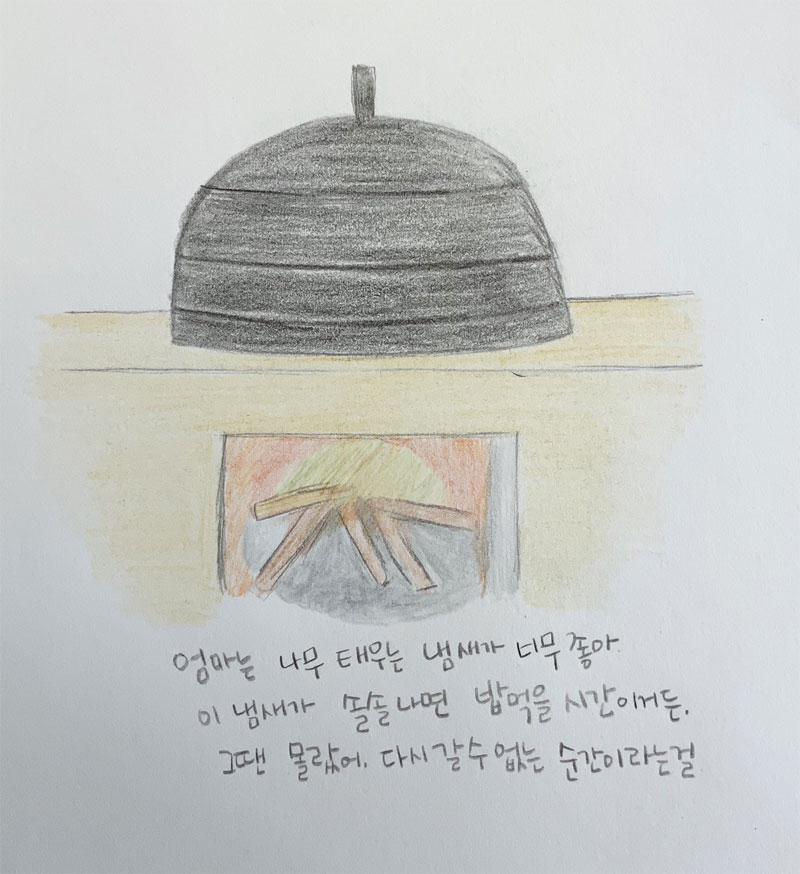 엄마는 나무 태우는 냄새가 너무좋아.
이 냄새가 솔솔나면 밥먹을 시간이거든.
그땐 몰랐어. 다시갈수없는 순간이라는걸